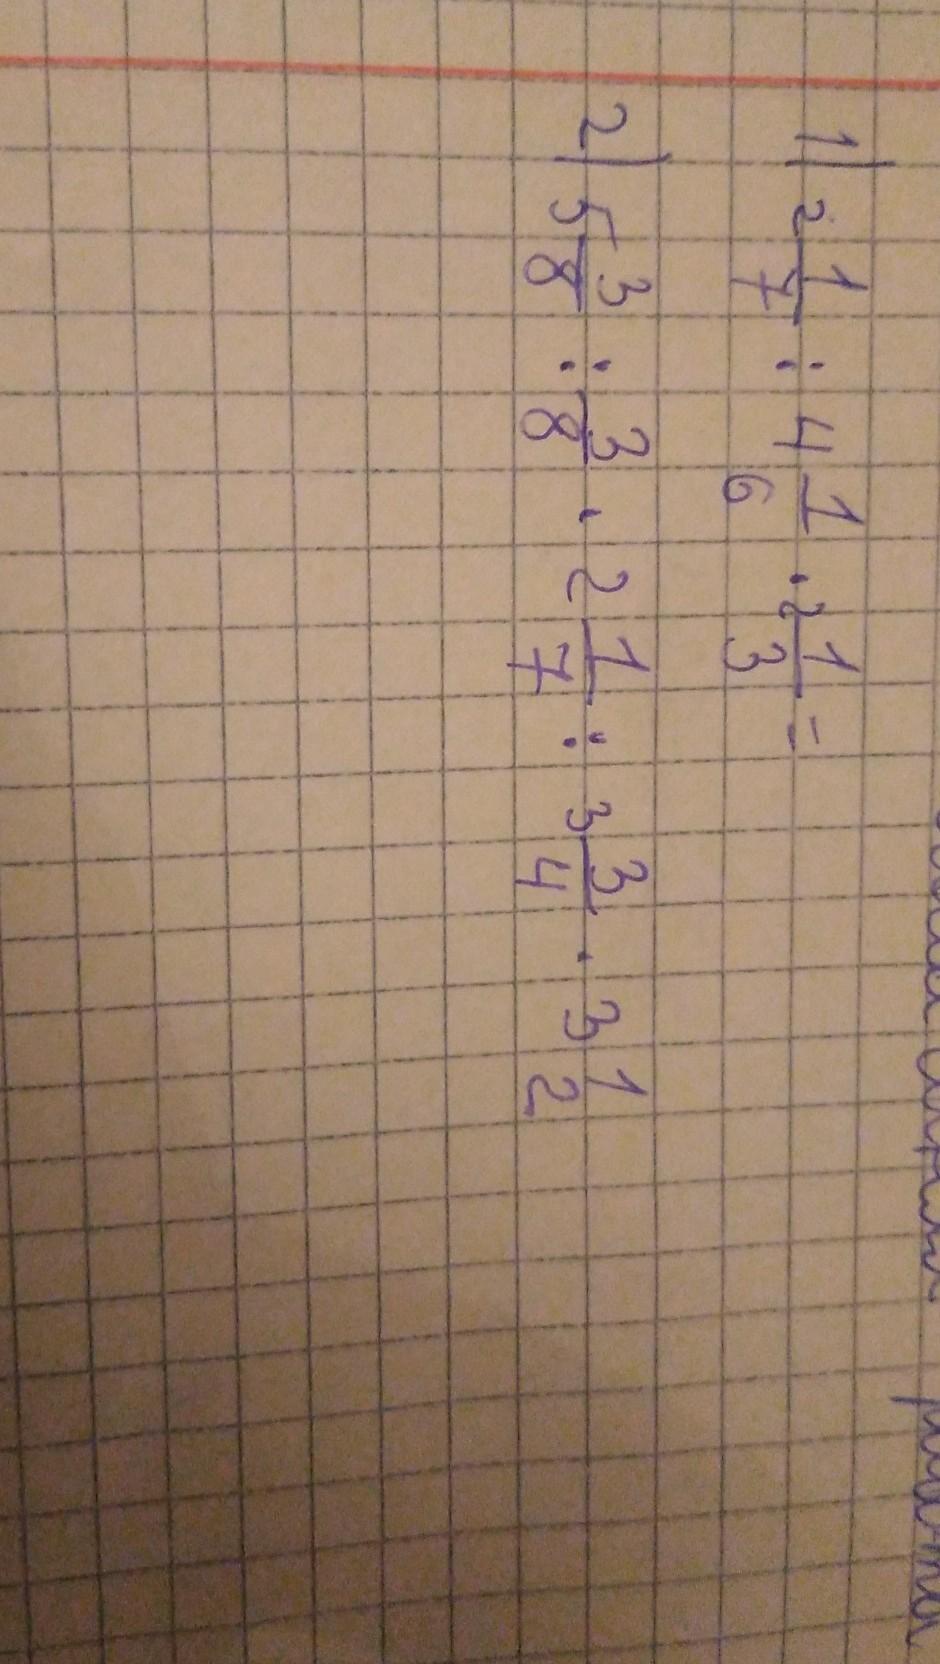 1) 2 1/7 : 4 1/6 · 2 1/3 =
2) 5 3/8 : 3/8 · 2 1/7 : 3 3/4 · 3 1/2